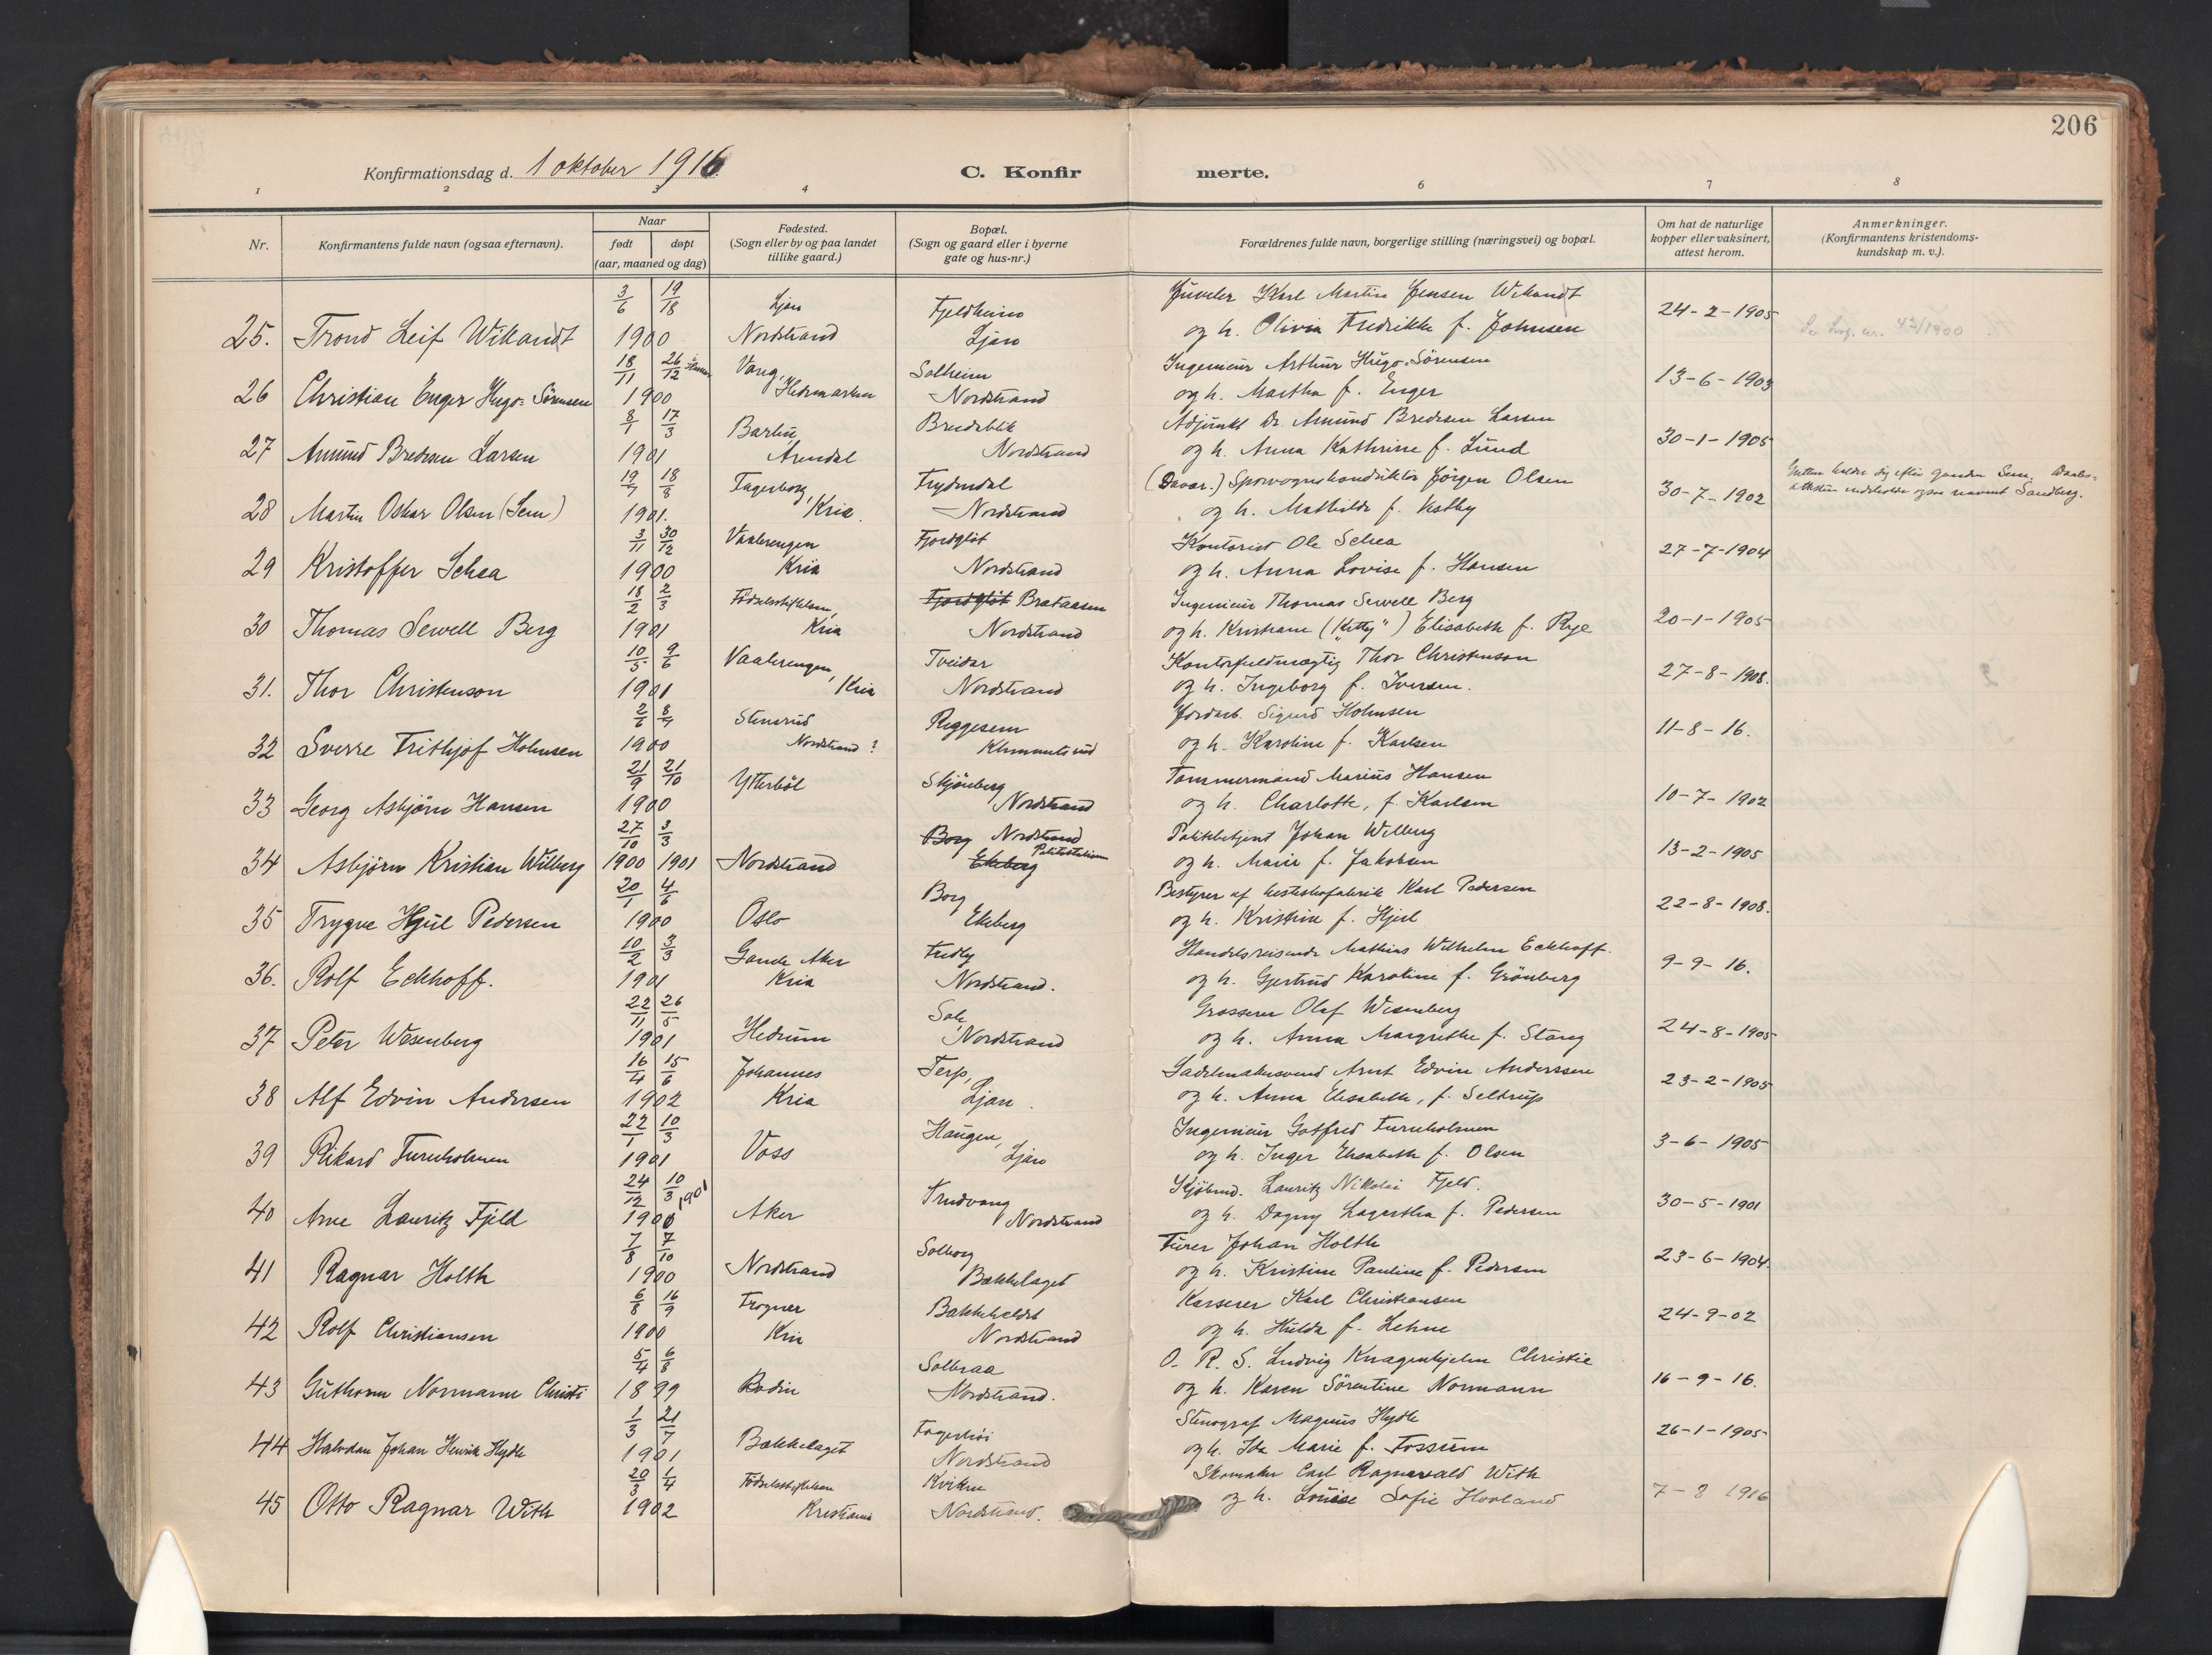 206
Konfirmationsdag d. 1 oktober 1916
C. Konfir merte.
1 2 3 4 6 7 8
Nr.
Konfirmantens fulde navn (ogsaa efternavn).
Naar
født døpt
(aar, maaned og dag)
Fødested.
(Sogn eller by og paa landet
tillike gaard.)
Bopæl.
(Sogn og gaard eller i byerne
gate og hus-nr.)
Forældrenes fulde navn, borgerlige stilling (næringsvei) og bopæl.
Om hat de naturlige
kopper eller vaksinert,
attest herom.
Anmerkninger.
(Konfirmantens kristendoms-
kundskap m. v.).
3/6 19/18 Ljan Fjeldheim Juveler Karl Martin Jensen Wikandt 24-2-1905
25. Trond Leif Wikandt 1900 Nordstrand Ljan og h. Olivia Fredrikke f. Johnsen 42/1900
18/11 26/12 Vang, Solheim Ingeniør Arthur Hugo-Sørensen 13-6-1903
26 Christian Enger Hugo-Sørensen 1900 Hedmarken Nordstrand og h. Martha f. Enger
8/1 17/3 Barbu, Breidablik Adjunkt Dr. Amund Bredesen Larsen 30-1-1905
27 Amund Bredesen Larsen 1901 Arendal Nordstrand og h. Anna Kathrine f. Lund
19/7 18/8 Fagerborg, Frydendal (Davær.) Sporvognskonduktør Jörgen Olsen 30-7-1902
28 Martin Oskar Olsen (Sem) 1901. Kria. Nordstrand og h. Mathilde f. Vestby
3/11 30/12 Vaalerengen Fjordgløt Kontorist Ole Schea 27-7-1904
29 Kristoffer Schea 1900 Kria Nordstrand og h. Anna Lovise f. Hansen
18/2 2/3 Födselsstiftelsen, Fjordgløt Brataasen Ingeniør Thomas Sewell Berg 20-1-1905
30 Thomas Sewell Berg 1901 Kria Nordstrand og h. Kristiane ("Kitty") Elisabeth f. Rye
10/5 9/6 Vaalerengen, Tveidar Kontorfuldmægtig Thor Christenson 27-8-1908.
31. Thor Christenson 1901 Kria Nordstrand og h. Ingeborg f. Iversen.
2/6 8/7 Stenerud Riggesem Jordarb. Sigurd Holmsen 11-8-16.
32 Sverre Frithjof Holmsen 1900 Nordstrand? Klemmetsrud og h. Karoline f. Karlsen
21/9 21/10 Ytterböl Skjönberg Tømmermand Marius Hansen 10-7-1902
33 Georg Asbjörn Hansen 1900 Nordstrand og h. Charlotte, f. Karlsen
27/10 3/3 Borg Nordstrand Politistation Politibetjent Johan Wilberg 13-2-1905
34 Asbjörn Kristian Wilberg 1900 1901 Nordstrand Ekeberg og h. Marie f. Jakobsen
20/1 4/6 Borg Bestyrer af hesteskofabrik Karl Pedersen 22-8-1908.
35 Trygve Hjul Pedersen 1900 Oslo Ekeberg og h. Kristine f. Hjul
10/2 3/3 Gamle Aker Fredly Handelsreisende Mathias Wilhelm Eckhoff. 9-9-16.
36. Rolf Eckhoff. 1901 Kria Nordstrand. og h. Gjertrud Karoline f. Grönberg
22/11 26/5 Sole, Grosserer Olaf Wesenberg 24-8-1905
37 Peter Wesenberg 1901 Hedrum Nordstrand og h. Anna Margrethe f. Stang
16/4 15/6 Johannes Terp, Sadelmakersvend Arnt Edvin Anderssen 23-2-1905
38 Alf Edvin Andersen 1902 Kria Ljan. og h. Anna Elisabeth, f. Seltrup
22/1 10/3 Haugen, Ingeniør Gotfred Furuholmen 3-6-1905
39 Rikard Furuholmen 1901 Voss Ljan og h. Inger Elisabeth f. Olsen
24/12 10/3 1901 Trudvang Kjöbmd. Lauritz Nikolai Fjeld. 30-5-1901
40 Arne Lauritz Fjeld 1900 Aker Nordstrand og h. Dagny Lagertha f. Pedersen
7/8 7/10 Solborg Furer Johan Holth 23-6-1904.
41 Ragnar Holth 1900 Nordstrand Bækkelaget og h. Kristine Pauline f. Pedersen
6/8 16/9 Frogner Bakkeheldt Kasserer Karl Christiansen 24-9-02
42 Rolf Christiansen 1900 Kria Nordstrand og h. Hulda f. Lehne
5/4 6/8 Solbraa O. R. S. Ludvig Knagenhjelm Christie 16-9-16.
43 Guthorm Normann Christi 1899 Bodin Nordstrand. og h. Karen Sörentine Normann
1/3 21/7 Fagerhöi Stenograf Magnus Hydle 26-1-1905
44 Halvdan Johan Henrik Hydle 1901 Bækkelaget Nordstrand og h. Ida Marie f. Fossum
20/3 1/4 Födselsstiftelsen Kirken Skomaker Carl Ragnvald With 7-8 1916
45 Otto Ragnar With 1902 Kristiania Nordstrand. og h. Louise Sofie Hovland